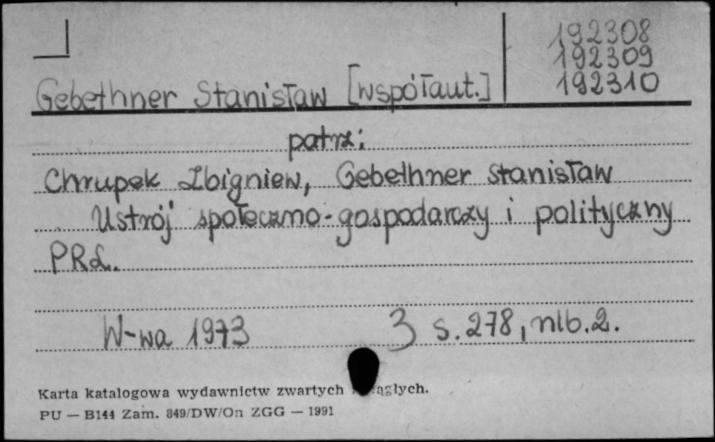 192308
192309
192310
Gebethner Stanisław [współaut.]
patrz:
Chrupek Zbigniew, Gebethner Stanisław
Ustrój społeczno-gospodarczy i polityczny
PRL.
W-wa 1973 3 s. 278, nlb. 2.
Karta katalogowa wydawnictw zwartych
PU — B144 Zam. 849/DW/On ZGG — 1991